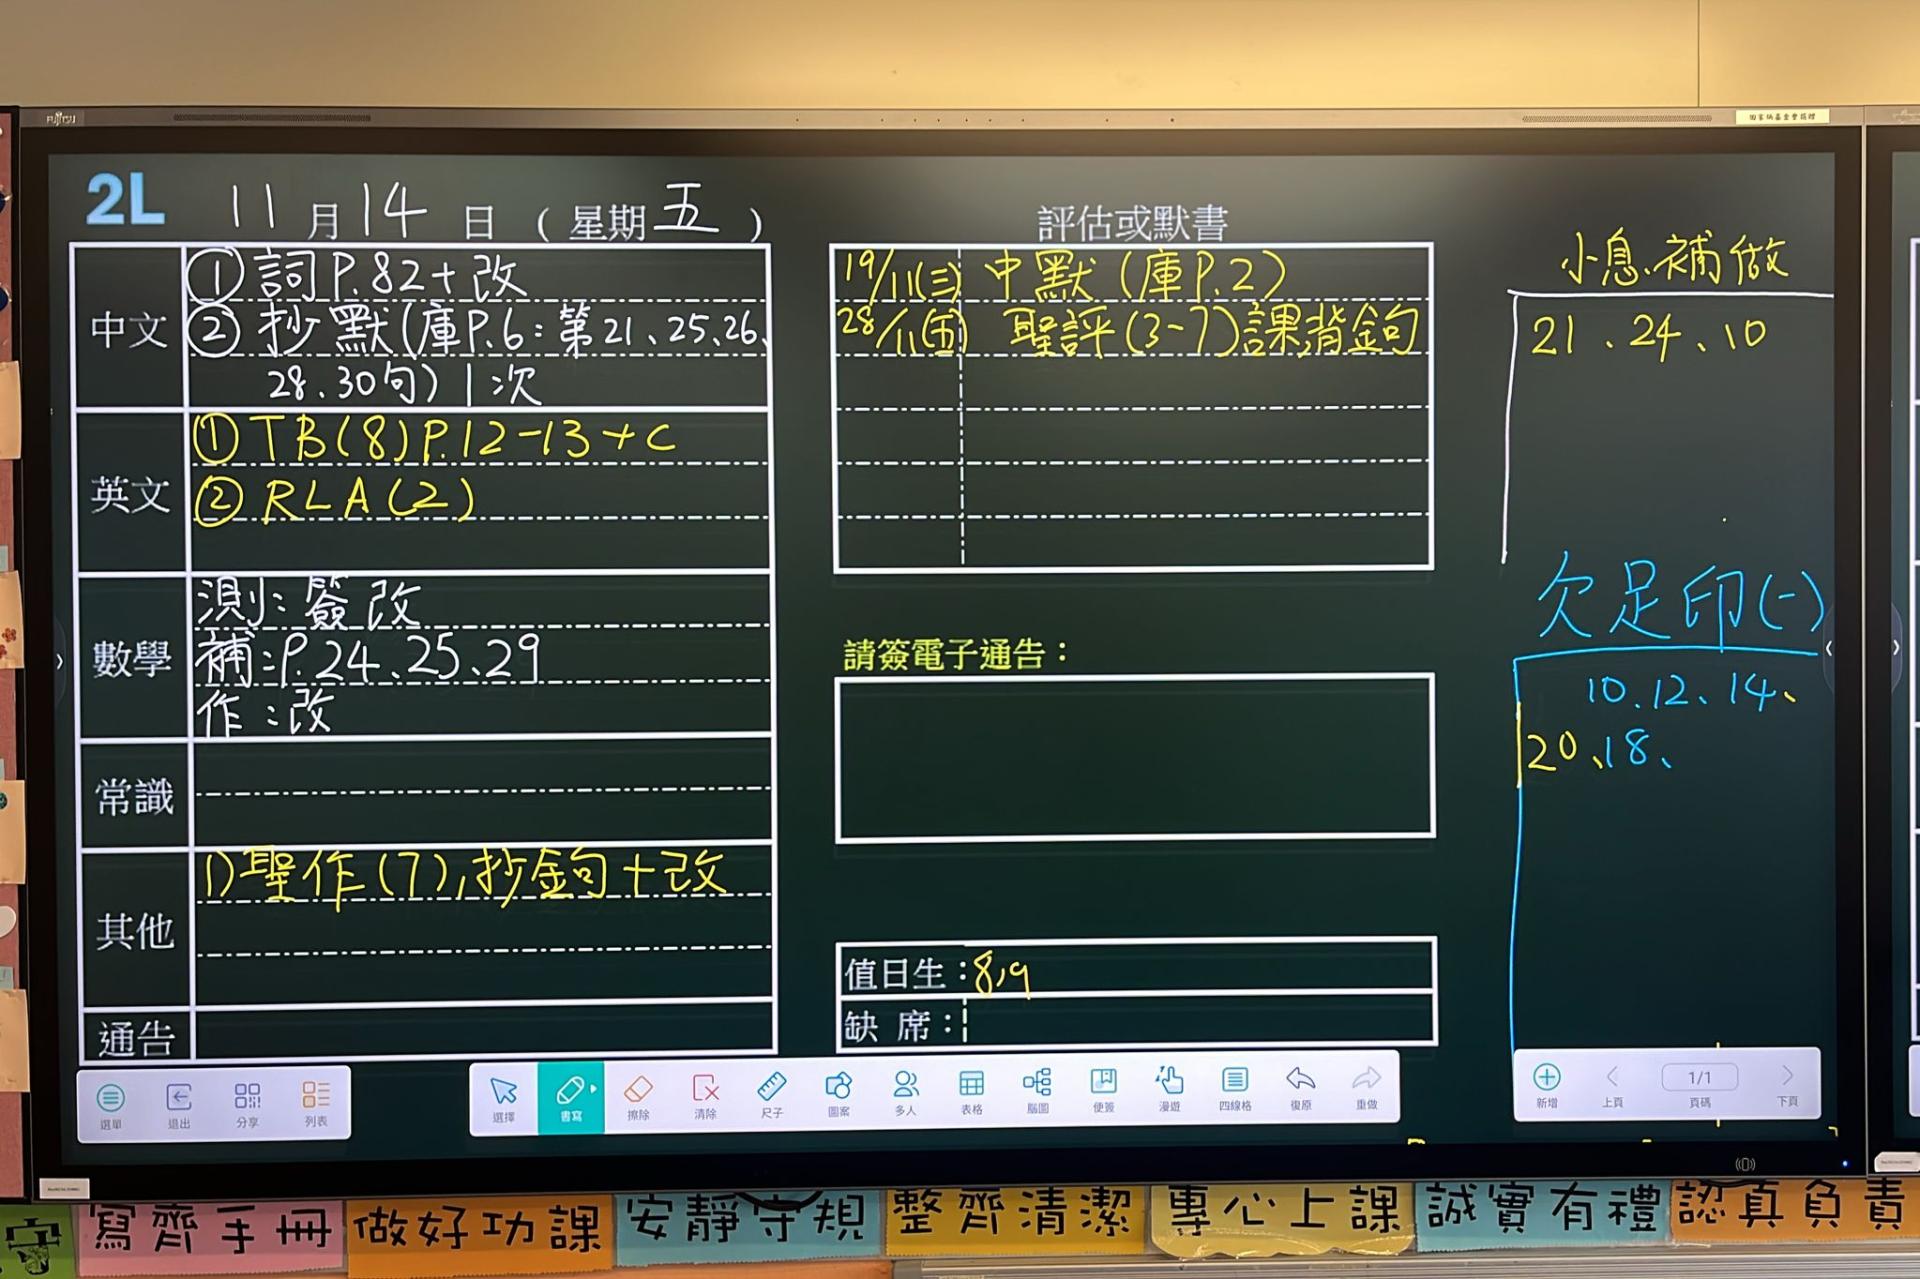 FUJITSU
2L 11月14日(星期五)
中文
①詞P.82+改
②抄默(庫P.6:第21、25、26、
28、30句)1次
英文
①TB(8)P.12-13+C
②RLA(2)
數學
測小:簽改
補:P.24、25、29
作:改
常識
其他
1)聖作(7),抄金句+改
通告
評估或默書
19/11(三) 中默(庫P.2)
28/11(五) 聖評(3-7)課,背金句
請簽電子通告:
值日生:8,9
缺席:
小息補做
21、24、10
欠足印(-)
10、12、14、
20、18、
選單 退出 分享 列表
選擇 書寫 擦除 清除 尺子 圖案 多人 表格 腦圖 便簽 漫遊 四線格 復原 重做
新增 上頁 1/1 頁碼 下頁
守 寫齊手冊 做好功課 安靜守規 整齊清潔 專心上課 誠實有禮 認真負責